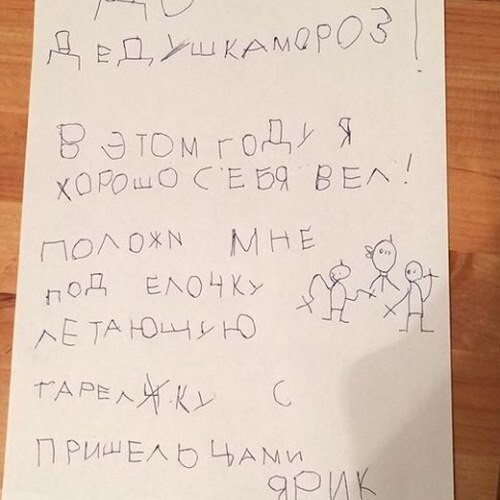 ДЕДУШКАМОРОЗ!
В ЭТОМ ГОДУ Я
ХОРОШО СЕБЯ ВЕЛ!
ПОЛОЖИ МНЕ
ПОД ЕЛОЧКУ
ЛЕТАЮЩУЮ
ТАРЕЛЖКУ С
ПРИШЕЛЬЦАМИ
ЯРИК